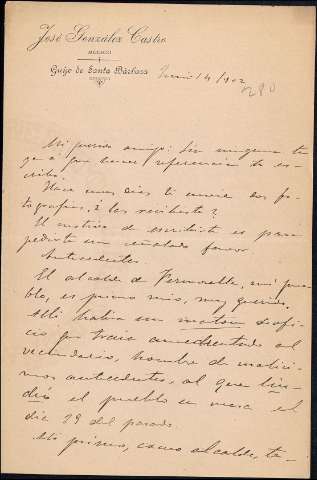 José González Castro
MÉDICO
Guijo de Santa Bárbara
Junio 4/902
280
Mi querido amigo: Sin ninguna tu-
ya á que hacer referencia te es-
cribo.
Hace unos dias te envié dos fo-
tografías, ¿las recibiste?
El motivo de escribirte es para
pedirte un señalado favor.
Antecedentes.
El alcalde de mi pue-
blo, es primo mio, muy querido.
Allí habia un matón de ofi-
cio que traia amedrentado al
vecindario, hombre de malisi-
mos antecedentes, al que
el pueblo en masa el
dia 29 del pasado.
Mi primo, como alcalde, te-